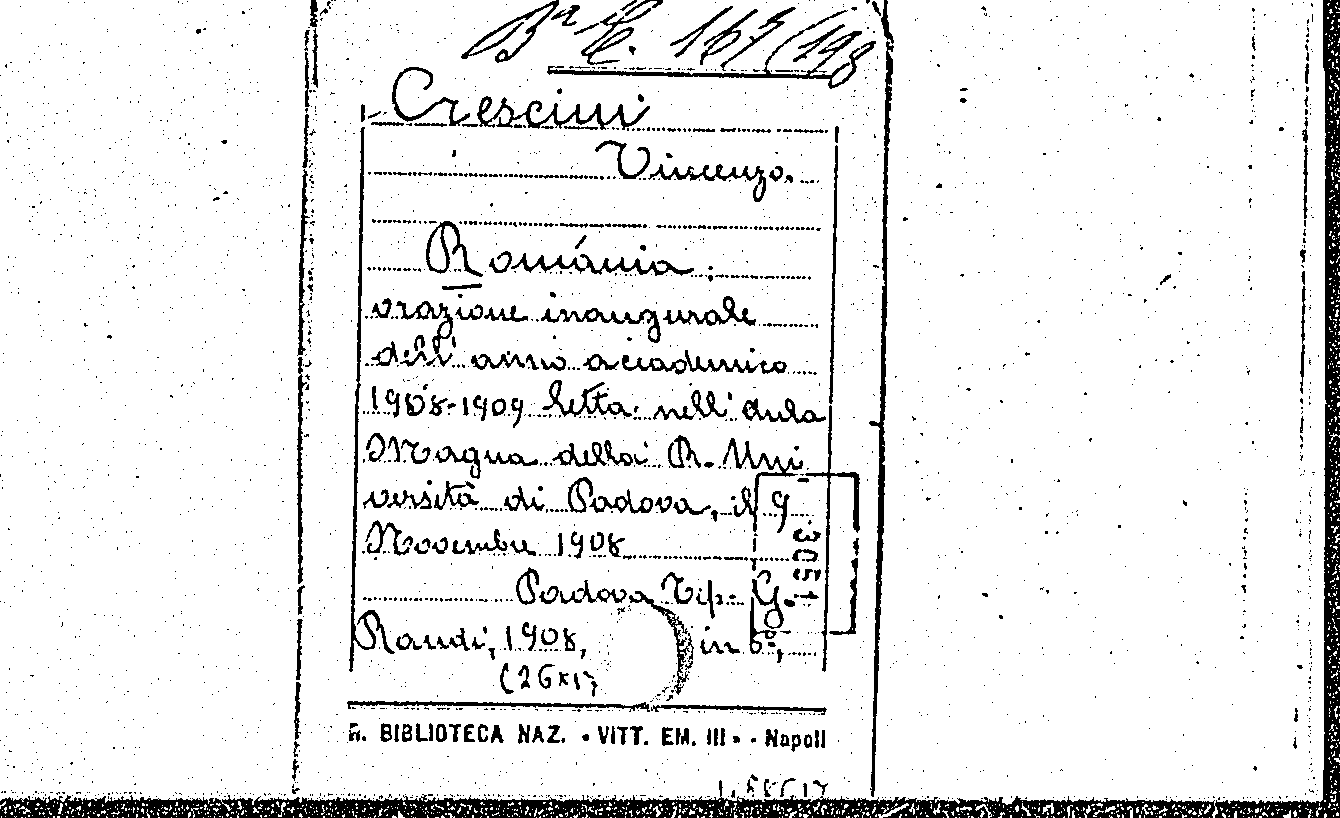 Bª C. 167 (198
Crescini
Vincenzo.
Románia:
orazione inaugurale
dell'anno accademico
1908-1909 letta nell'Aula
Magna della R. Uni
versità di Padova, il 9
Novembre 1908
3051
Padova Tip. G.
Randi, 1908, in 8º,
(26x17
R. BIBLIOTECA NAZ. • VITT. EM. III • - Napoli